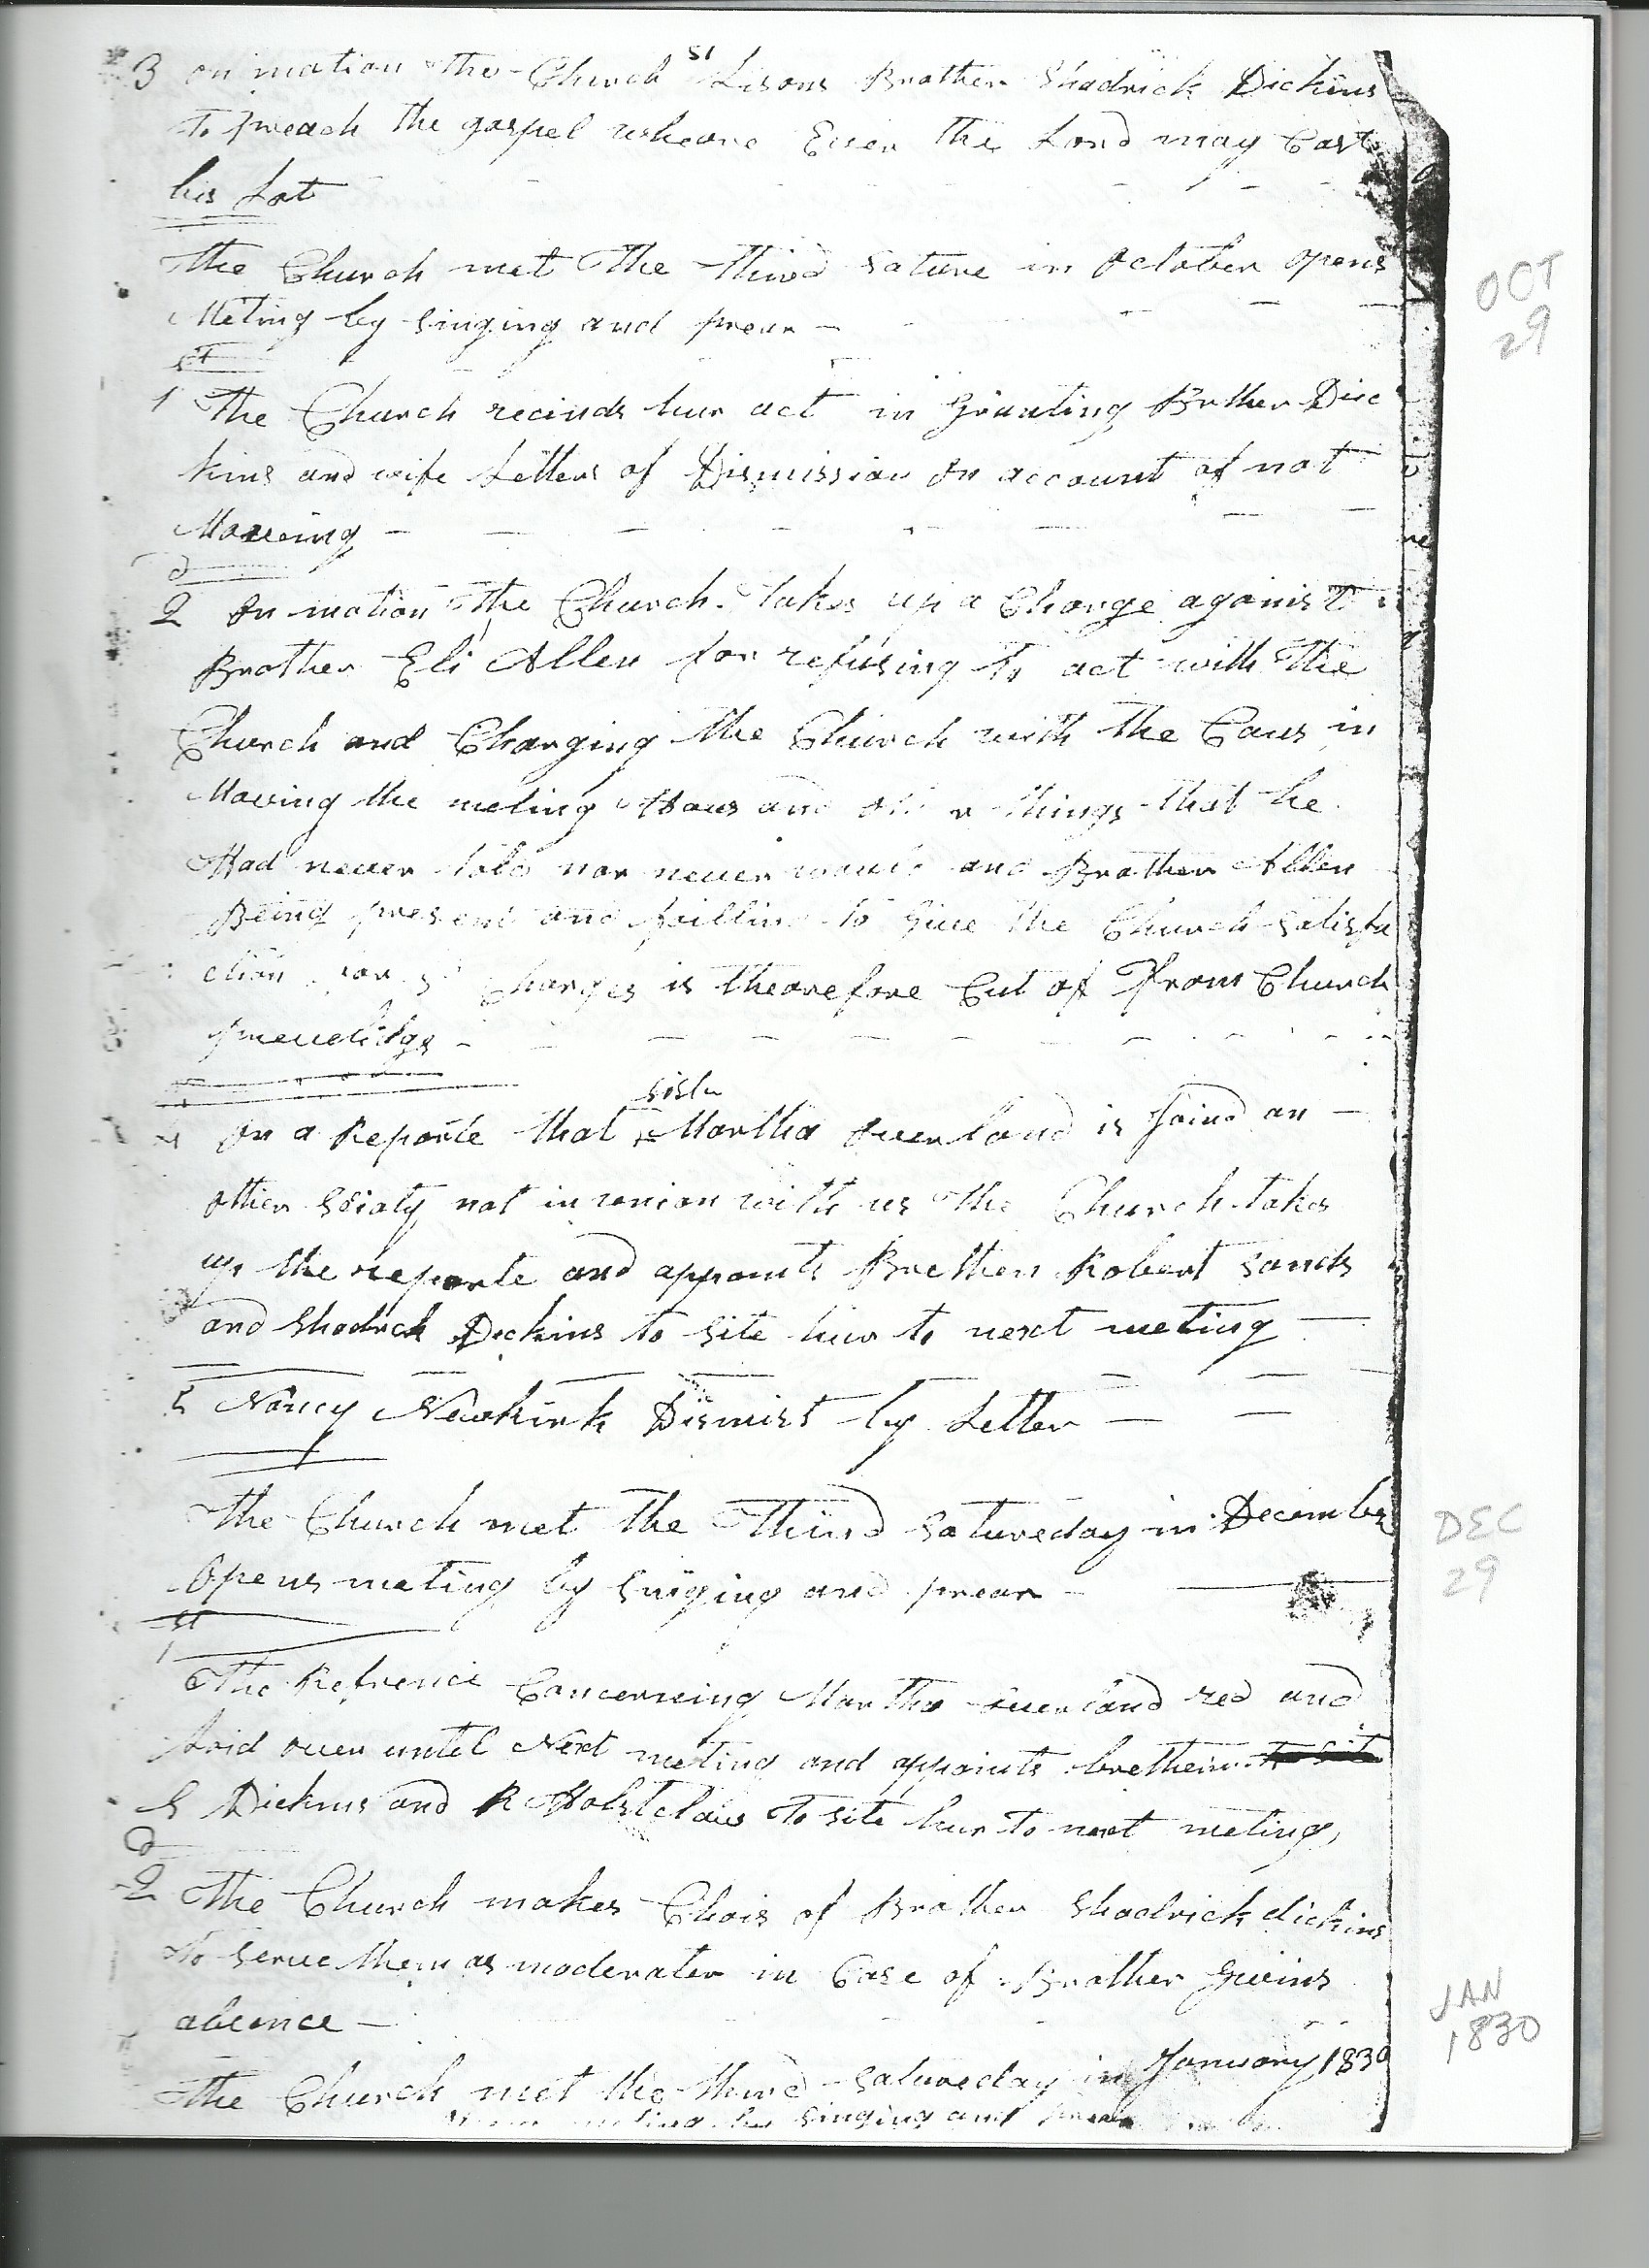 3 on motion the Church Lisons Brother Shadrick Dickins
To preach the gospel wheare Ever the Lord may Cast
his Lot
The Church met The Third Sature in October opens
Meting by singing and prear
OCT
29
st
1 The Church recinds hur act in Granting Brother Dic
kins and wife Letters of Dismission On account of not
Moveing
d
2 On motion The Church takes up a Charge against
Brother Eli Allen for refusing to act with the
Church and Charging the Church with the Caus in
Moving the meting Hous and things that he
Had never told nor never and Brother Allen
Being present and failling to give the Church satisfa
ction charges is thearefore Cut of From Church
prevelidge
sister
4 On a Reporte that Martha Overland is Joind an
other Soiaty not in union with us The Church takes
up the reporte and appoints Brethen Robert Sands
and Shadrick Dickins to site hur to next meting
5 Nancy Newkirk Dismist by Letter
The Church met The Third Satureday in December
Opens meting by Singing and prear
DEC
29
st
1
The Refrence Concerneing Martha Overland red and
Laid over until Next meting and appoints bretheirn to site
S Dickins and R Holstclaw To site hur to next meting,
d
2 The Church makes Chois of Brother Shadrick dickins
To serve them as moderater in Case of Brother Givins
absence
JAN
1830
The Church met the third Satureday in January 1830
singing and